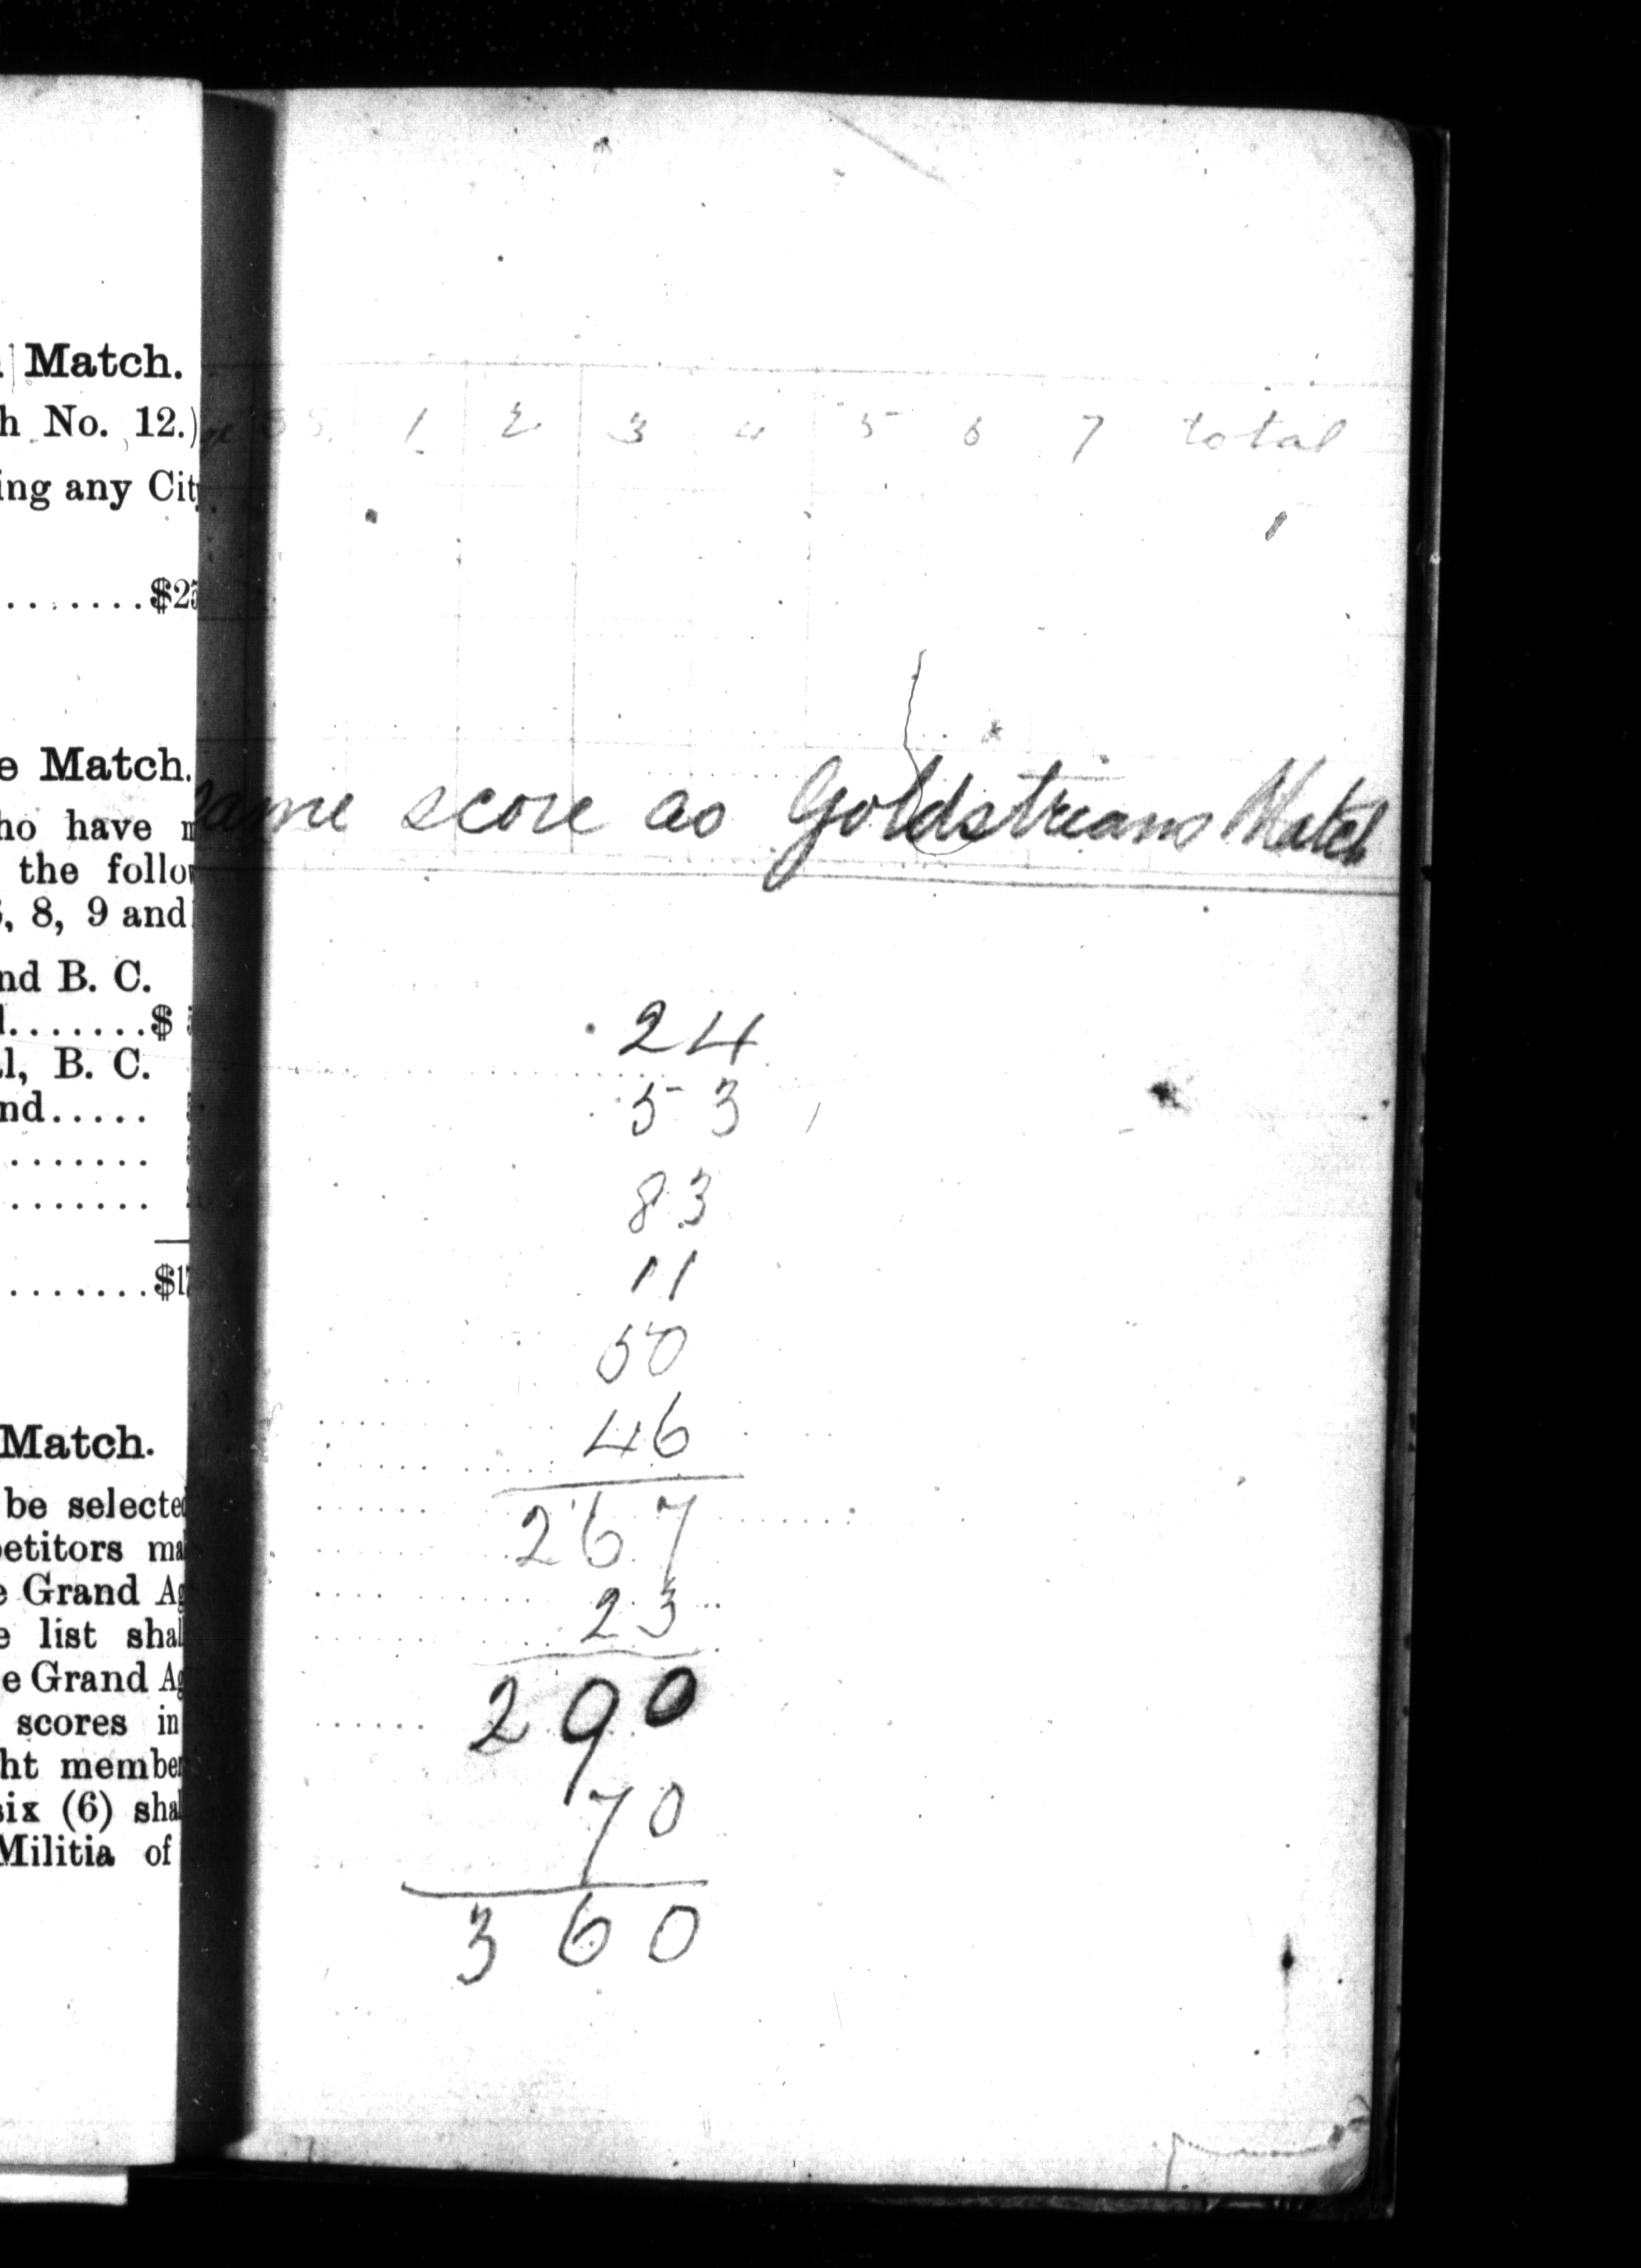 Match.
h No. 12.)
ing any City
.......$25
e Match.
ho have m
the follow
, 8, 9 and
nd B. C.
l.......$
l, B. C.
nd.....
.......
.......
.......$17
Match.
be selected
petitors ma
e Grand Ag
e list shal
e Grand Ag
scores in
ht member
six (6) shal
Militia of
SS. 1 2 3 4 5 6 7 total
same score as Goldstreams Match
24
53
83
11
50
46
267
23
290
70
360